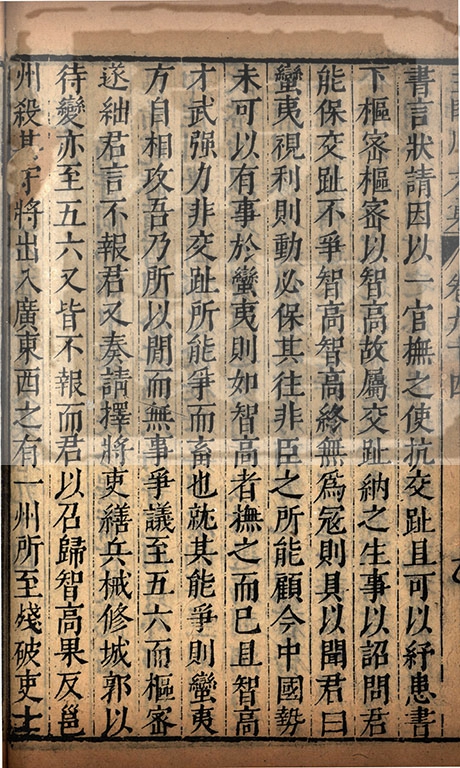 書言狀請因以一官撫之使抗交趾且可以紓患書
下樞密樞密以智高故屬交趾納之生事以詔問君
能保交趾不爭智高智高終無為寇則具以聞君曰
蠻夷視利則動必保其往非臣之所能顧今中國勢
未可以有事於蠻夷則如智高者撫之而已且智高
才武强力非交趾所能爭而畜也就其能爭則蠻夷
方自相攻吾乃所以閒而無事爭議至五六而樞密
遂絀君言不報君又奏請擇將吏繕兵械修城郭以
待變亦至五六又皆不報而君以召歸智高果反邕
州殺其守將出入廣東西之有一州所至殘破吏士